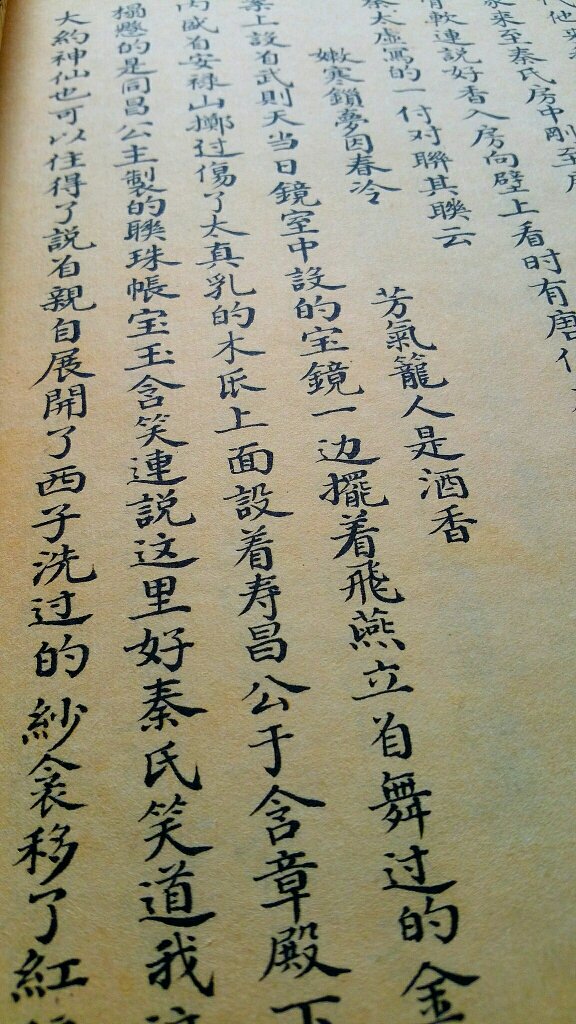 代他來
家来至秦氏房中剛至房
骨軟連説好香入房向壁上看时有唐伯
秦太虛寫的一付对聯其聯云
嫩寒鎖夢因春冷
芳氣籠人是酒香
案上設有武則天当日鏡室中設的宝鏡一边擺着飛燕立着舞过的金
内盛着安禄山擲过傷了太真乳的木瓜上面設着寿昌公于含章殿下
榻懸的是同昌公主製的聯珠帳宝玉含笑連説这里好秦氏笑道我这
大約神仙也可以住得了説着親自展開了西子洗过的紗衾移了紅